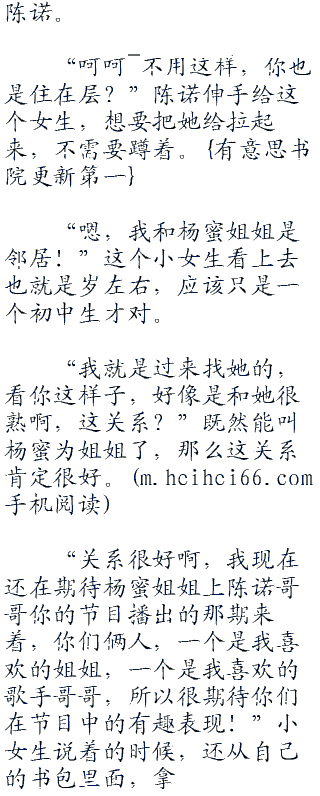 陈诺。
“呵呵~不用这样，你也
是住在层？”陈诺伸手给这
个女生，想要把她给拉起
来，不需要蹲着。{有意思书
院更新第一}
“嗯，我和杨蜜姐姐是
邻居！”这个小女生看上去
也就是岁左右，应该只是一
个初中生才对。
“我就是过来找她的，
看你这样子，好像是和她很
熟啊，这关系？”既然能叫
杨蜜为姐姐了，那么这关系
肯定很好。(m.hcihci66.com
手机阅读)
“关系很好啊，我现在
还在期待杨蜜姐姐上陈诺哥
哥你的节目播出的那期来
着，你们俩人，一个是我喜
欢的姐姐，一个是我喜欢的
歌手哥哥，所以很期待你们
在节目中的有趣表现！”小
女生说着的时候，还从自己
的书包里面，拿